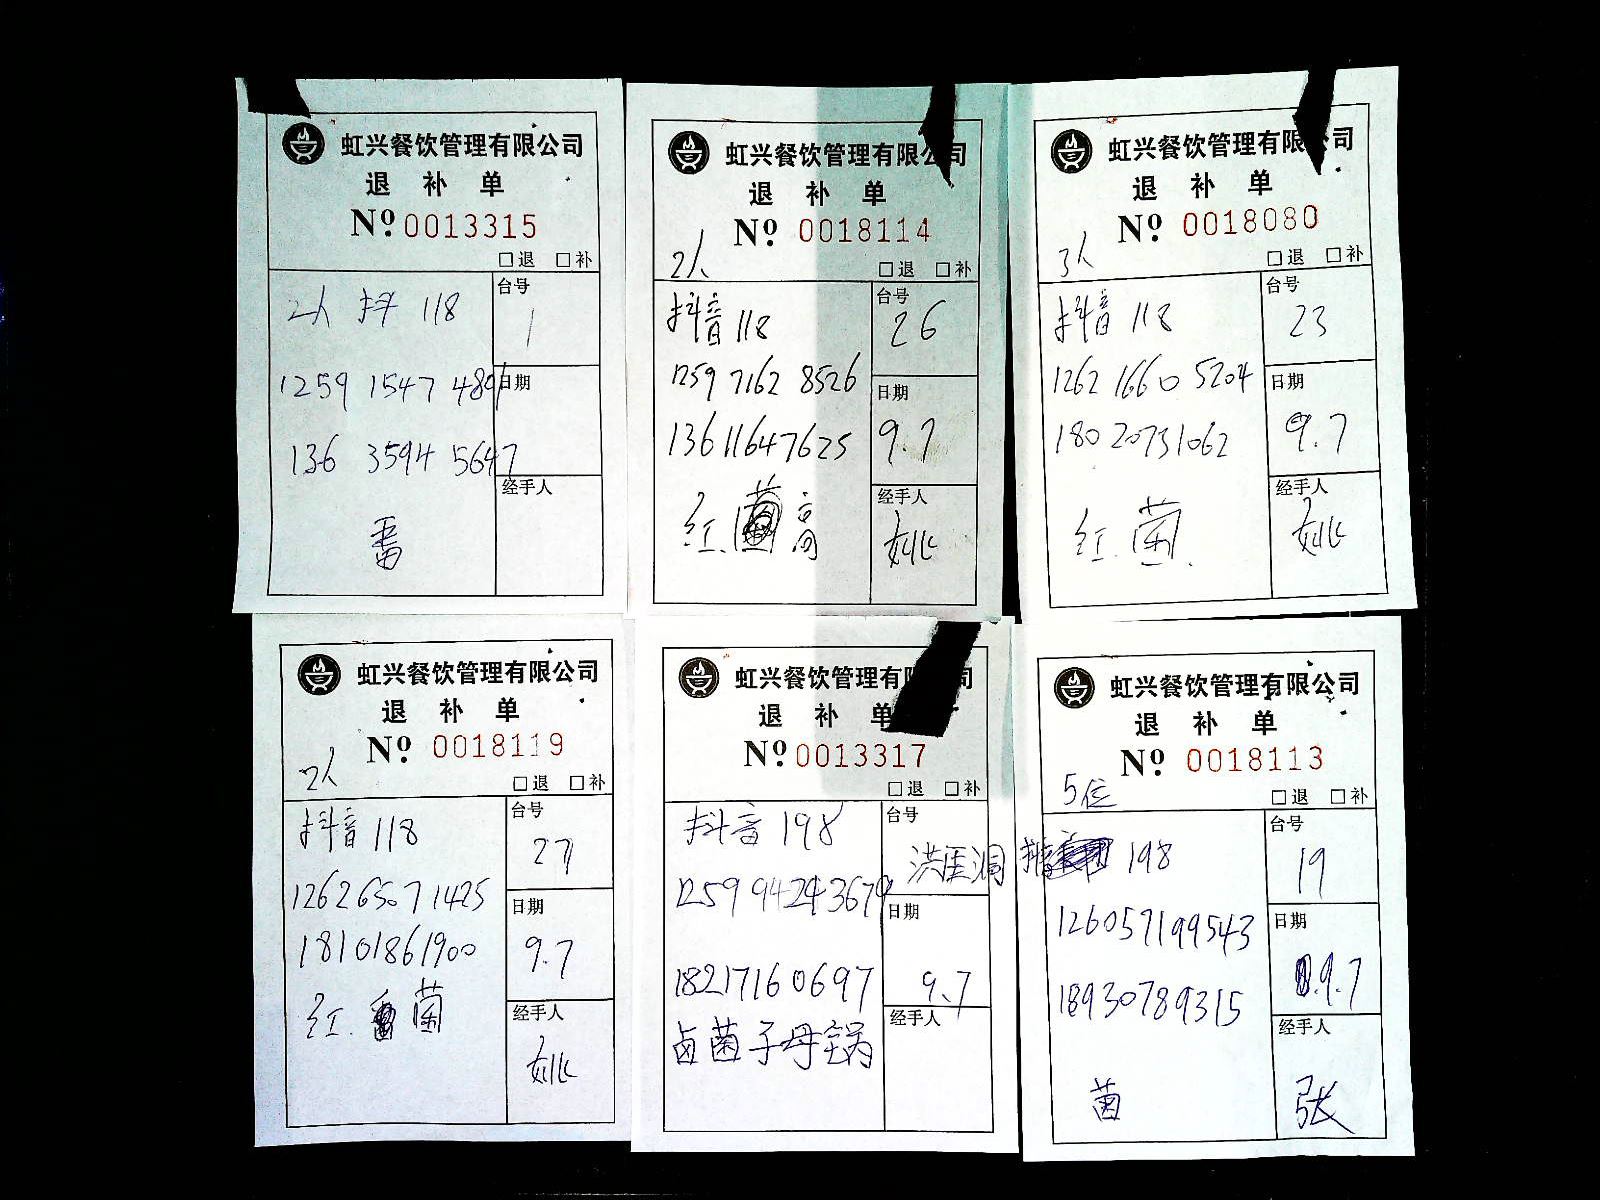 虹兴餐饮管理有限公司
退 补 单
Nº 0013315
□退 □补
2人 抖 118
台号
1
1259 1547 489
日期
136 3594 5647
经手人
番
虹兴餐饮管理有限公司
退 补 单
Nº 0018114
2人
□退 □补
抖音 118
台号
26
1259 7162 8526
日期
13611647625
9.7
红. 高
经手人
姚
虹兴餐饮管理有限公司
退 补 单
Nº 0018080
3人
□退 □补
抖音 118
台号
23
1262 1660 5204
日期
180 20731062
9.7
红. 菌.
经手人
姚
虹兴餐饮管理有限公司
退 补 单
Nº 0018119
2人
□退 □补
抖音 118
台号
27
126265071425
日期
18101861900
9.7
红. 菌
经手人
姚
虹兴餐饮管理有限公司
退 补 单
Nº 0013317
□退 □补
抖音 198
台号
洪厓洞
1259 94243679
日期
18217160697
9.7
卤菌子母锅
经手人
虹兴餐饮管理有限公司
退 补 单
Nº 0018113
5位
□退 □补
198
台号
19
126057199543
日期
18930789315
9.7
菌
经手人
张